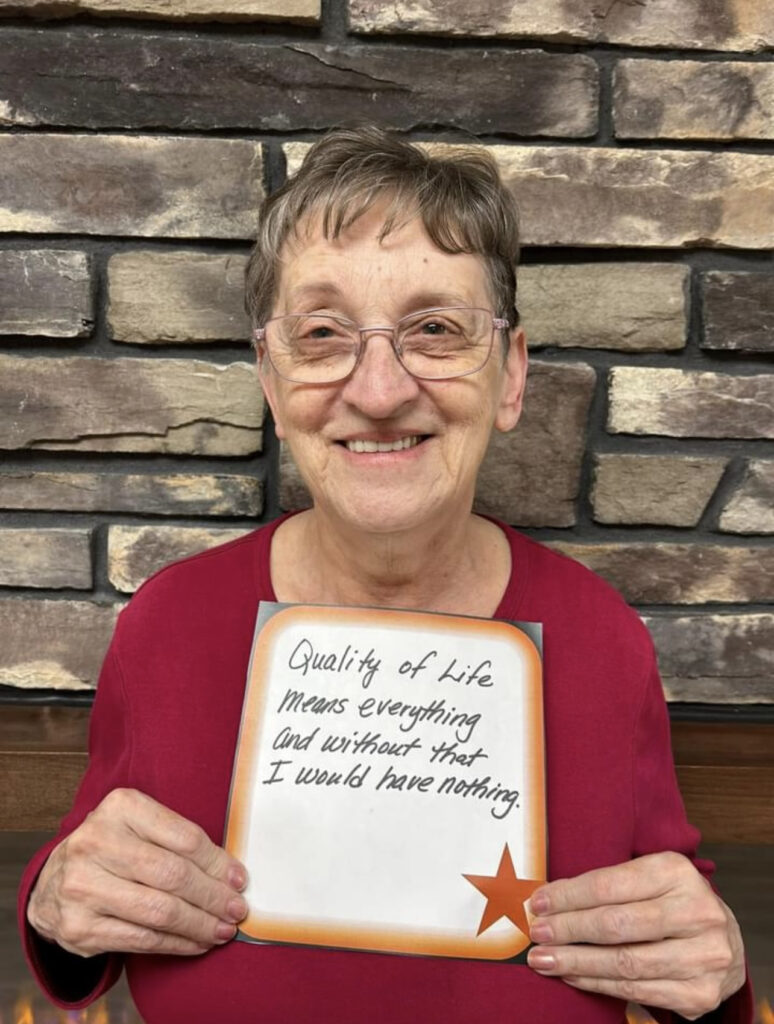 Quality of Life
means everything
and without that
I would have nothing.